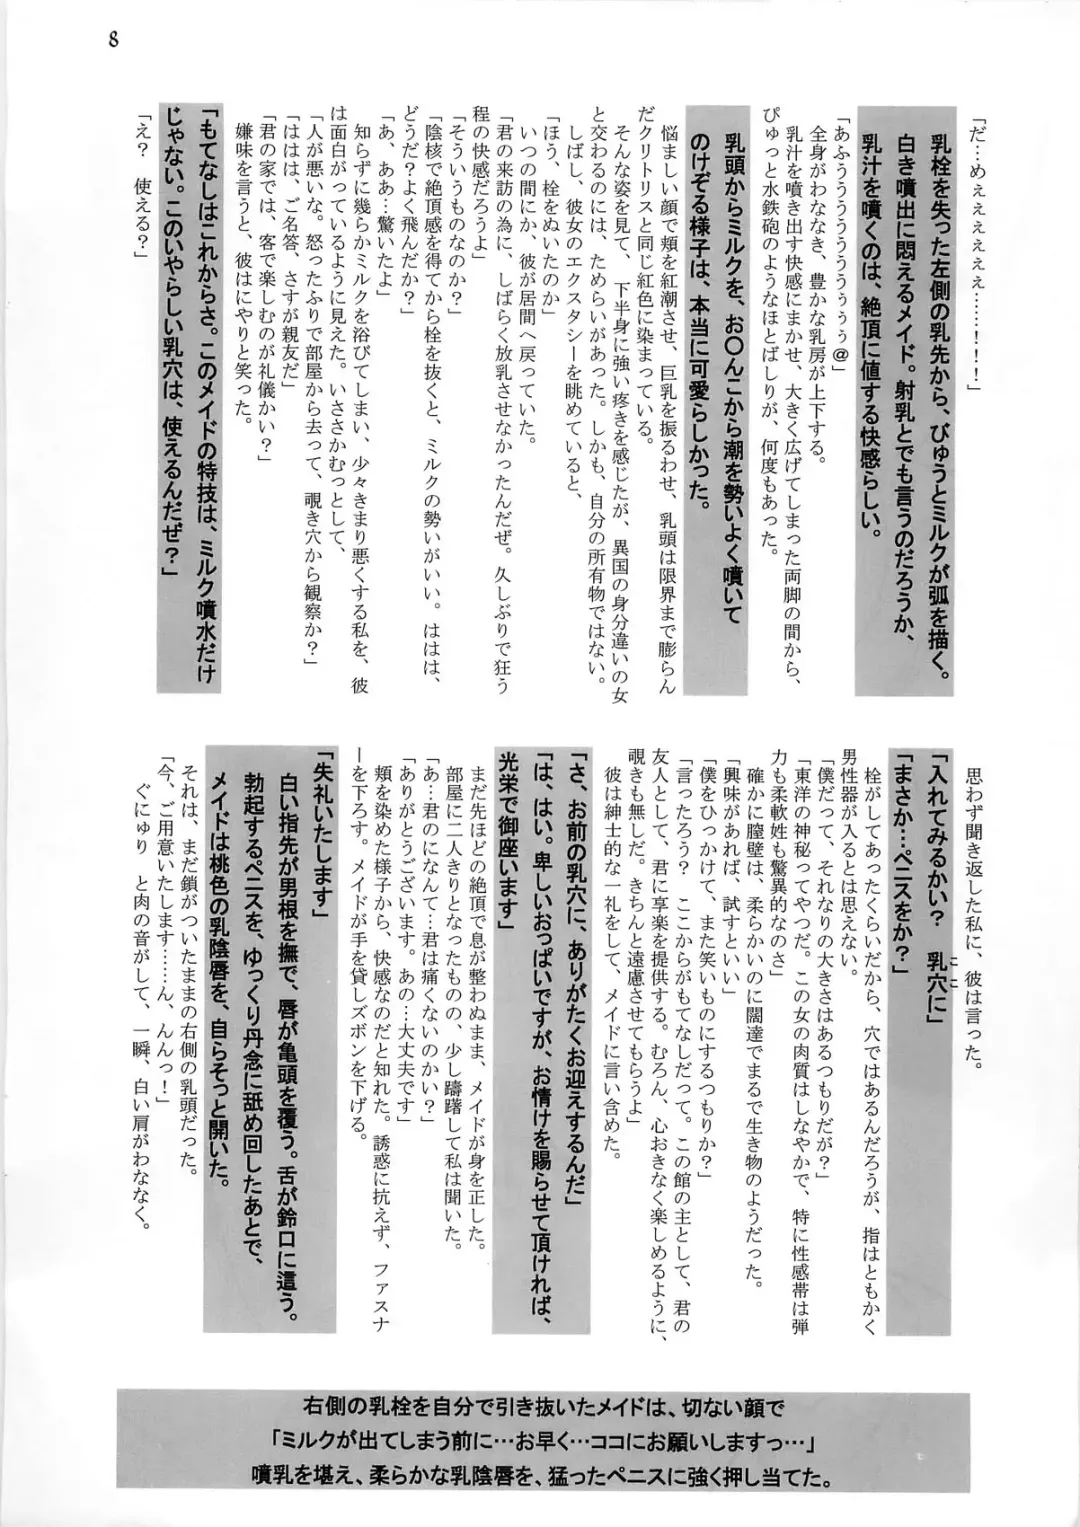 8
「だ…めぇぇぇぇぇ……!!!」
乳栓を失った左側の乳先から、びゅうとミルクが弧を描く。
白き噴出に悶えるメイド。射乳とでも言うのだろうか、
乳汁を噴くのは、絶頂に値する快感らしい。
「あふぅうううううぅぅぅ@」
全身がわななき、豊かな乳房が上下する。
乳汁を噴き出す快感にまかせ、大きく広げてしまった両脚の間から、
ぴゅっと水鉄砲のようなほとばしりが、何度もあった。
乳頭からミルクを、お〇んこから潮を勢いよく噴いて
のけぞる様子は、本当に可愛らしかった。
悩ましい顔で頬を紅潮させ、巨乳を振るわせ、乳頭は限界まで膨らん
だクリトリスと同じ紅色に染まっている。
そんな姿を見て、下半身に強い疼きを感じたが、異国の身分違いの女
と交わるのには、ためらいがあった。しかも、自分の所有物ではない。
しばし、彼女のエクスタシーを眺めていると、
「ほう、栓をぬいたのか」
いつの間にか、彼が居間へ戻っていた。
「君の来訪の為に、しばらく放乳させなかったんだぜ。久しぶりで狂う
程の快感だろうよ」
「そういうものなのか？」
「陰核で絶頂感を得てから栓を抜くと、ミルクの勢いがいい。ははは、
どうだ？よく飛んだか？」
「あ、ああ…驚いたよ」
知らずに幾らかミルクを浴びてしまい、少々きまり悪くする私を、彼
は面白がっているように見えた。いささかむっとして、
「人が悪いな。怒ったふりで部屋から去って、覗き穴から観察か？」
「ははは、ご名答、さすが親友だ」
「君の家では、客で楽しむのが礼儀かい？」
嫌味を言うと、彼はにやりと笑った。
「もてなしはこれからさ。このメイドの特技は、ミルク噴水だけ
じゃない。このいやらしい乳穴は、使えるんだぜ？」
「え？　使える？」
思わず聞き返した私に、彼は言った。
「入れてみるかい？　乳穴（ここ）に」
「まさか…ペニスをか？」
栓がしてあったくらいだから、穴ではあるんだろうが、指はともかく
男性器が入るとは思えない。
「僕だって、それなりの大きさはあるつもりだが？」
「東洋の神秘ってやつだ。この女の肉質はしなやかで、特に性感帯は弾
力も柔軟姓も驚異的なのさ」
確かに膣壁は、柔らかいのに闊達でまるで生き物のようだった。
「興味があれば、試すといい」
「僕をひっかけて、また笑いものにするつもりか？」
「言ったろう？　ここからがもてなしだって。この館の主として、君の
友人として、君に享楽を提供する。むろん、心おきなく楽しめるように、
覗きも無しだ。きちんと遠慮させてもらうよ」
彼は紳士的な一礼をして、メイドに言い含めた。
「さ、お前の乳穴に、ありがたくお迎えするんだ」
「は、はい。卑しいおっぱいですが、お情けを賜らせて頂ければ、
光栄で御座います」
まだ先ほどの絶頂で息が整わぬまま、メイドが身を正した。
部屋に二人きりとなったものの、少し躊躇して私は聞いた。
「あ…君のになんて…君は痛くないのかい？」
「ありがとうございます。あの…大丈夫です」
頬を染めた様子から、快感なのだと知れた。誘惑に抗えず、ファスナ
ーを下ろす。メイドが手を貸しズボンを下げる。
「失礼いたします」
白い指先が男根を撫で、唇が亀頭を覆う。舌が鈴口に這う。
勃起するペニスを、ゆっくり丹念に舐め回したあとで、
メイドは桃色の乳陰唇を、自らそっと開いた。
それは、まだ鎖がついたままの右側の乳頭だった。
「今、ご用意いたします……ん、んんっ！」
ぐにゅり　と肉の音がして、一瞬、白い肩がわななく。
右側の乳栓を自分で引き抜いたメイドは、切ない顔で
「ミルクが出てしまう前に…お早く…ココにお願いしますっ…」
噴乳を堪え、柔らかな乳陰唇を、猛ったペニスに強く押し当てた。